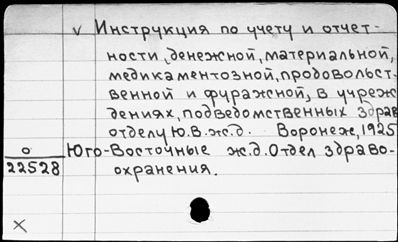 v Инструкция по учету и отчет-
ности, денежной, материальной,
медикаментозной, продовольст-
венной и фуражной, в учреж
дениях, подведомственных здрав
отделу Ю.В.ж.д. Воронеж, 1925
Юго-Восточные ж.д. Отдел здраво-
охранения.
0
22528
×